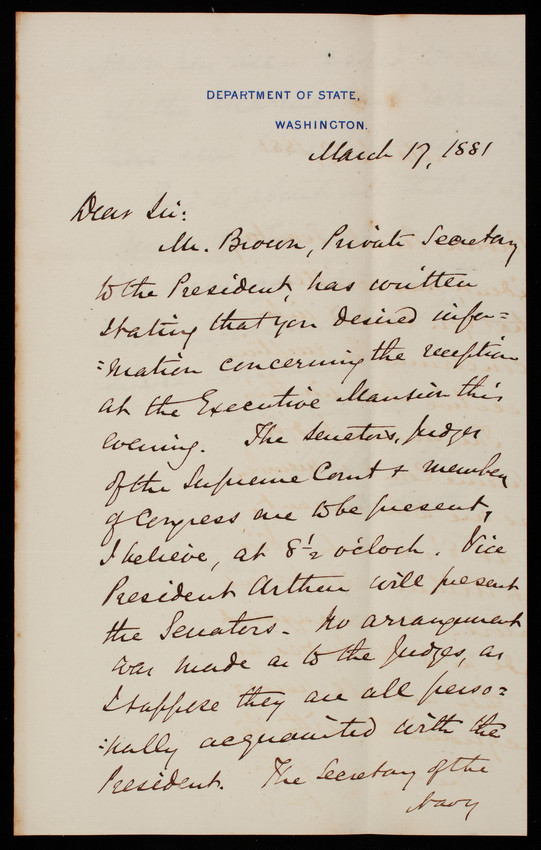 DEPARTMENT OF STATE,
WASHINGTON.
March 17, 1881
Dear Sir:
Mr. Brown, Private Secretary
to the President, has written
stating that you desired infor=
=mation concerning the reception
at the Executive Mansion this
evening. The Senators, Judges
of the Supreme Court & members
of Congress are to be present,
I believe, at 8 1/2 o'cloch. Vice
President Arthur will present
the Senators. No arrangement
was made as to the Judges, as
I suppose they are all perso=
=nally acquainted with the
President. The Secretary of the
Navy